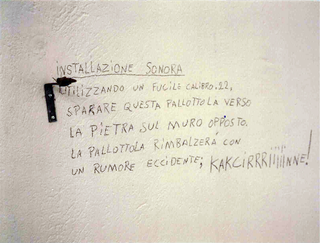 INSTALLAZIONE SONORA
UTILIZZANDO UN FUCILE CALIBRO.22,
SPARARE QUESTA PALLOTTOLA VERSO
LA PIETRA SUL MURO OPPOSTO.
LA PALLOTTOLA RIMBALZERÀ CON
UN RUMORE ECCIDENTE; KAKCIRRRIIIIIINNE!